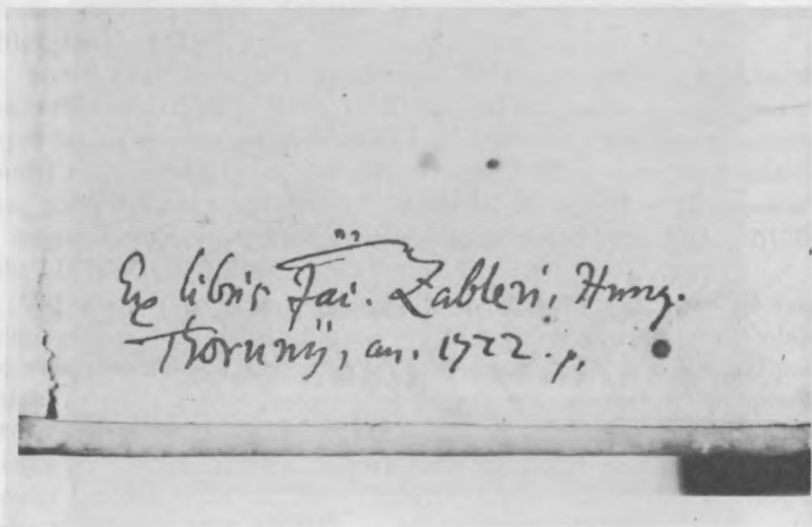 Ex libris Jai. Zableri, Hung.
Thorunij, an. 1722. p.